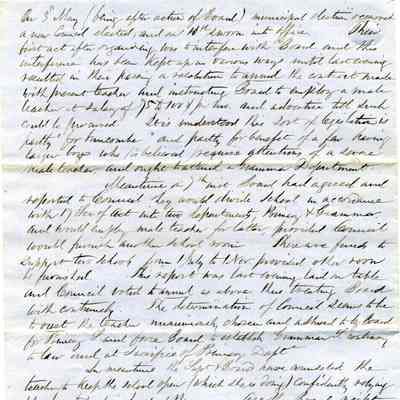 On 3d May (being after action of Board) municipal election occurred
a new Council elected, and on 10th sworn into office. Their
first act after organizing was to interfere with Board and this
interference has been kept up in various ways until last evening
resulted in their passing a resolution to annul the contract made
with present teacher and instructing Board to employ a male
teacher at salary of 75 to 100 $ pr mo. and advertise till such
could be procured. It is understood this sort of legislation is
partly "for buncombe" and partly for benefit of a few having
larger boys who it is believed require attention of a
male teacher, and ought to attend a Grammar Department
Meantime on 7th inst Board had agreed and
reported to Council they would divide School in accordance
with 17 Sec of Act into two departments Primary & Grammar
and would employ male teacher for latter provided Council
would furnish another school room. There are funds to
support two schools from 1 July to 1 Nov provided other room
be furnished. This report was last evening laid on table
and Council voted to annul as above thus treating Board
with contumely. The determination of Council seems to be
to oust the teacher chosen and adhered to by Board
for Primary and force Board to establish Grammar School
in and at sacrifice of Primary Dept.
In meantime the Supt & Board have counseled the
teacher to keep the school open (which she is doing) confidently relying